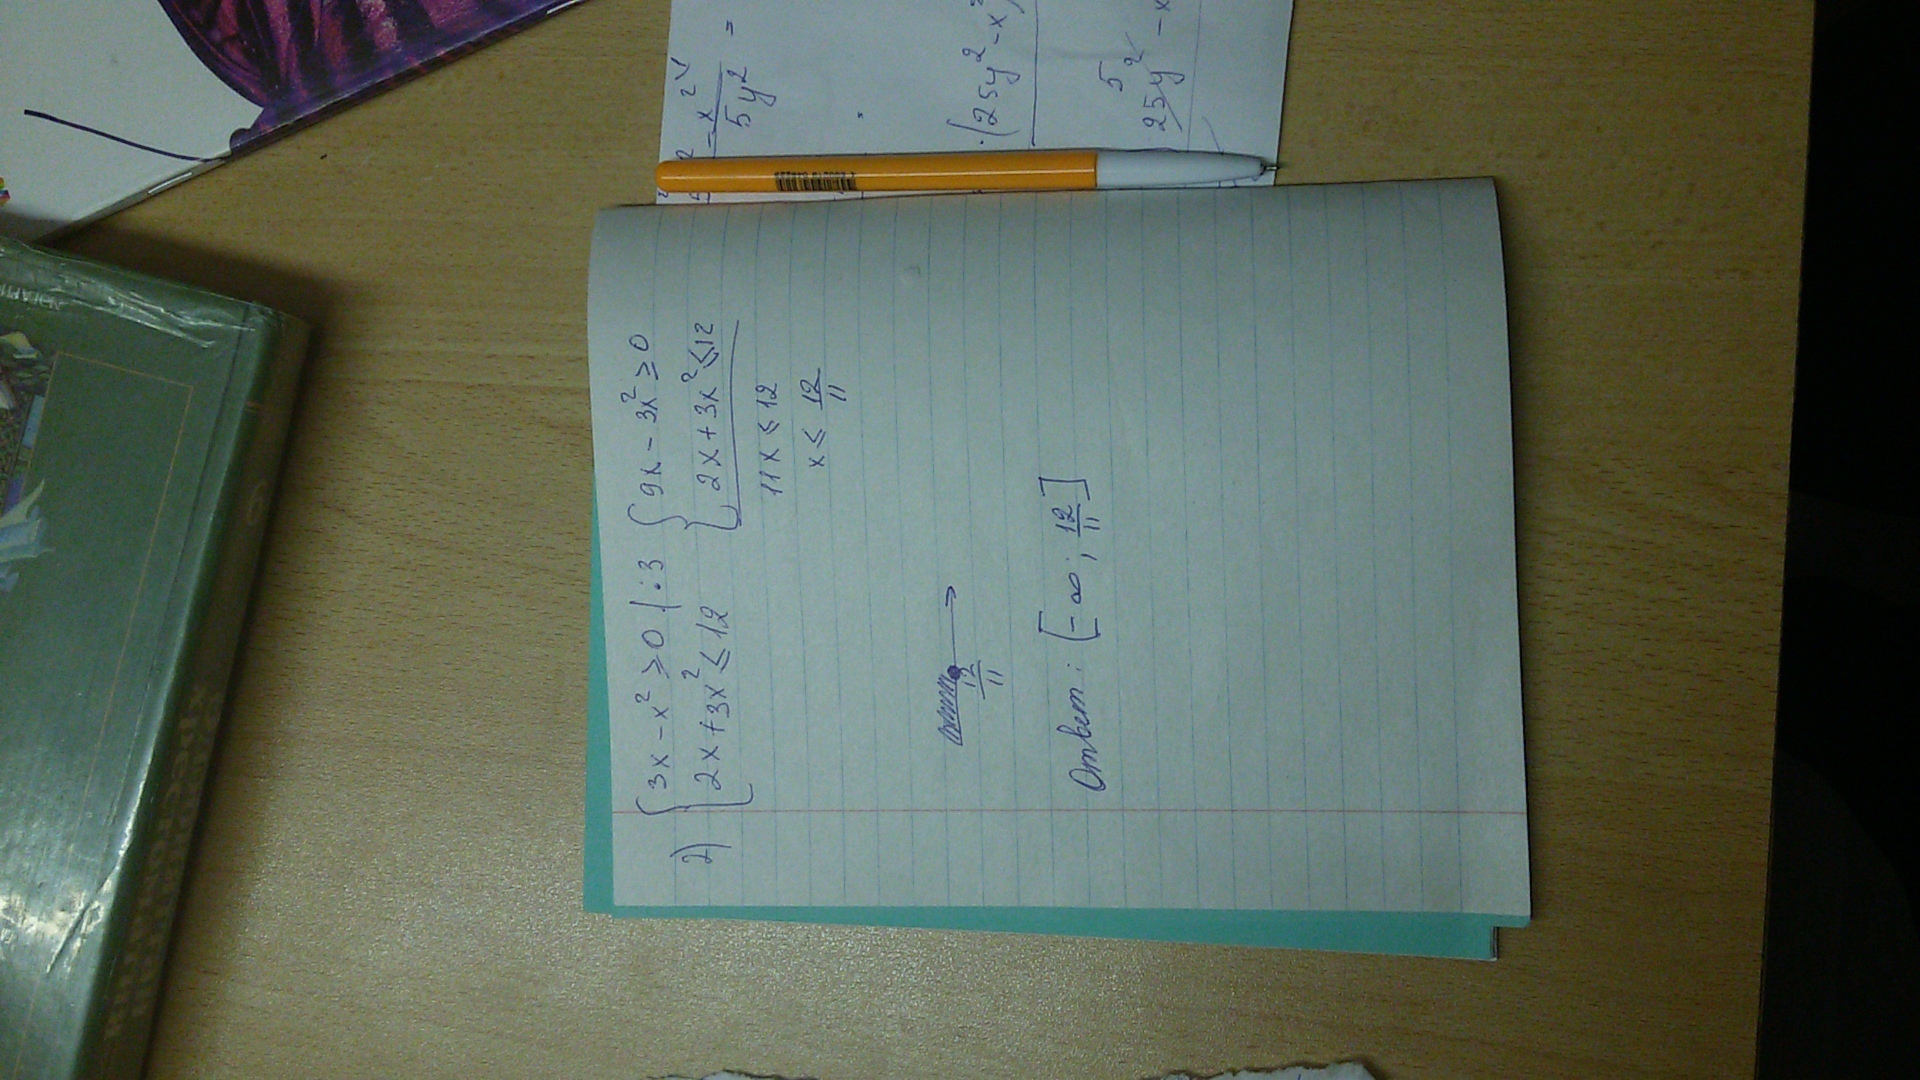 2) { 3x - x² ≥ 0 | : 3 { 9x - 3x² ≥ 0
{ 2x + 3x² ≤ 12 { 2x + 3x² ≤ 12
11x ≤ 12
x ≤ 12/11
12/11
Ответ: [-∞; 12/11]
- x²
5y²
=
(25y² - x
5
25y² - x